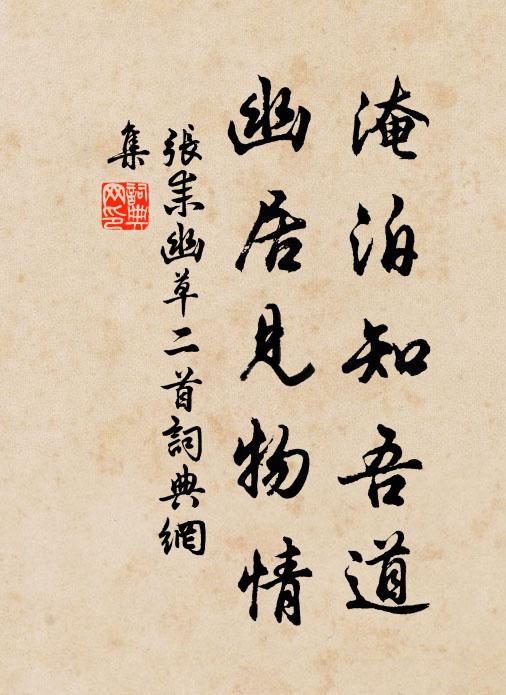 淹泊知吾道
幽居見物情
張耒幽草二首詞典網
集
詞典
网印